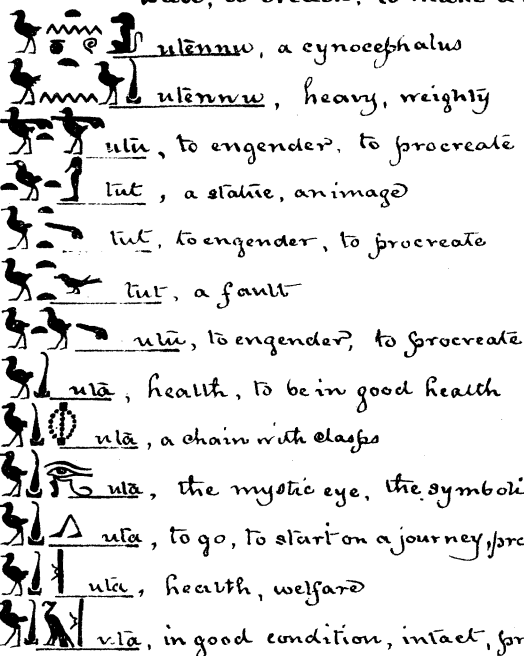 utennu, a cynocephalus
utennu, heavy, weighty
utu, to engender, to procreate
tut, a statue, an image
tut, to engender, to procreate
tut, a fault
utu, to engender, to procreate
utā, health, to be in good health
utā, a chain with clasps
utā, the mystic eye, the symboli
uta, to go, to start on a journey, pro
uta, health, welfare
uta, in good condition, intact, pr